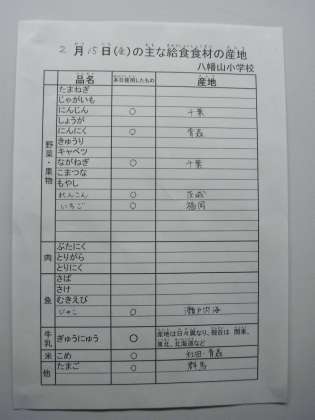 2月15日(金)の主な給食食材の産地
八幡山小学校
品名 本日使用したもの 産地
野菜・果物
たまねぎ
じゃがいも
にんじん ○ 千葉
しょうが
にんにく ○ 青森
きゅうり
キャベツ
ながねぎ ○ 千葉
こまつな
もやし
れんこん ○ 茨城
いちご ○ 福岡
肉
ぶたにく
とりがら
とりにく
魚
さば
さけ
むきえび
じゃこ ○ 瀬戸内海
牛乳 ぎゅうにゅう ○ 産地は日々異なり、現在は 関東、
東北、北海道など
米 こめ ○ 秋田・青森
他 たまご ○ 群馬